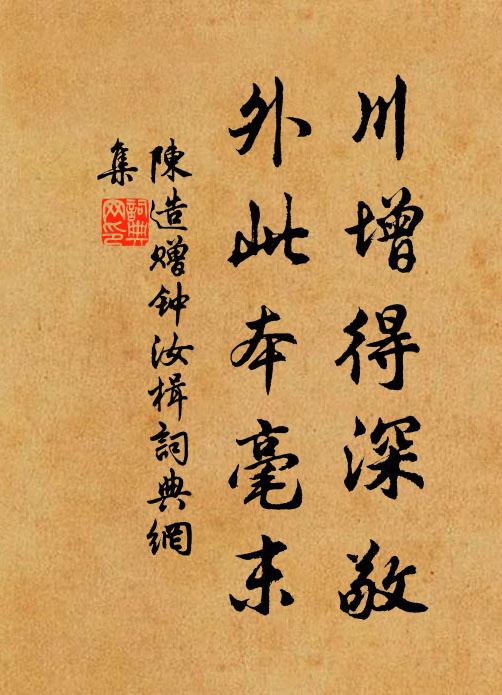 川增得深敬
外此本毫末
陳造贈钟汝楫詞典網
集
詞典
网印